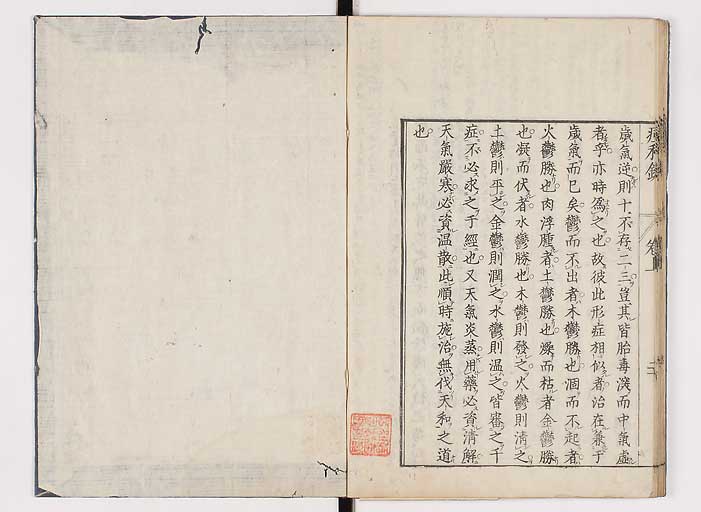 歳氣逆則十不存二三豈其皆胎毒淺而中氣虛
者乎亦時爲之也故彼此形症相似者治在兼于
歳氣而已矣鬱而不出者木鬱勝也涸而不起者
火鬱勝也肉浮腫者土鬱勝也燥而枯者金鬱勝
也凝而伏者水鬱勝也木鬱則發之火鬱則淸之
土鬱則平之金鬱則潤之水鬱則温之皆審之于
症不必求之于經也又天氣炎蒸用藥必資淸解
天氣嚴寒必資温散此順時施治無伐天和之道
也